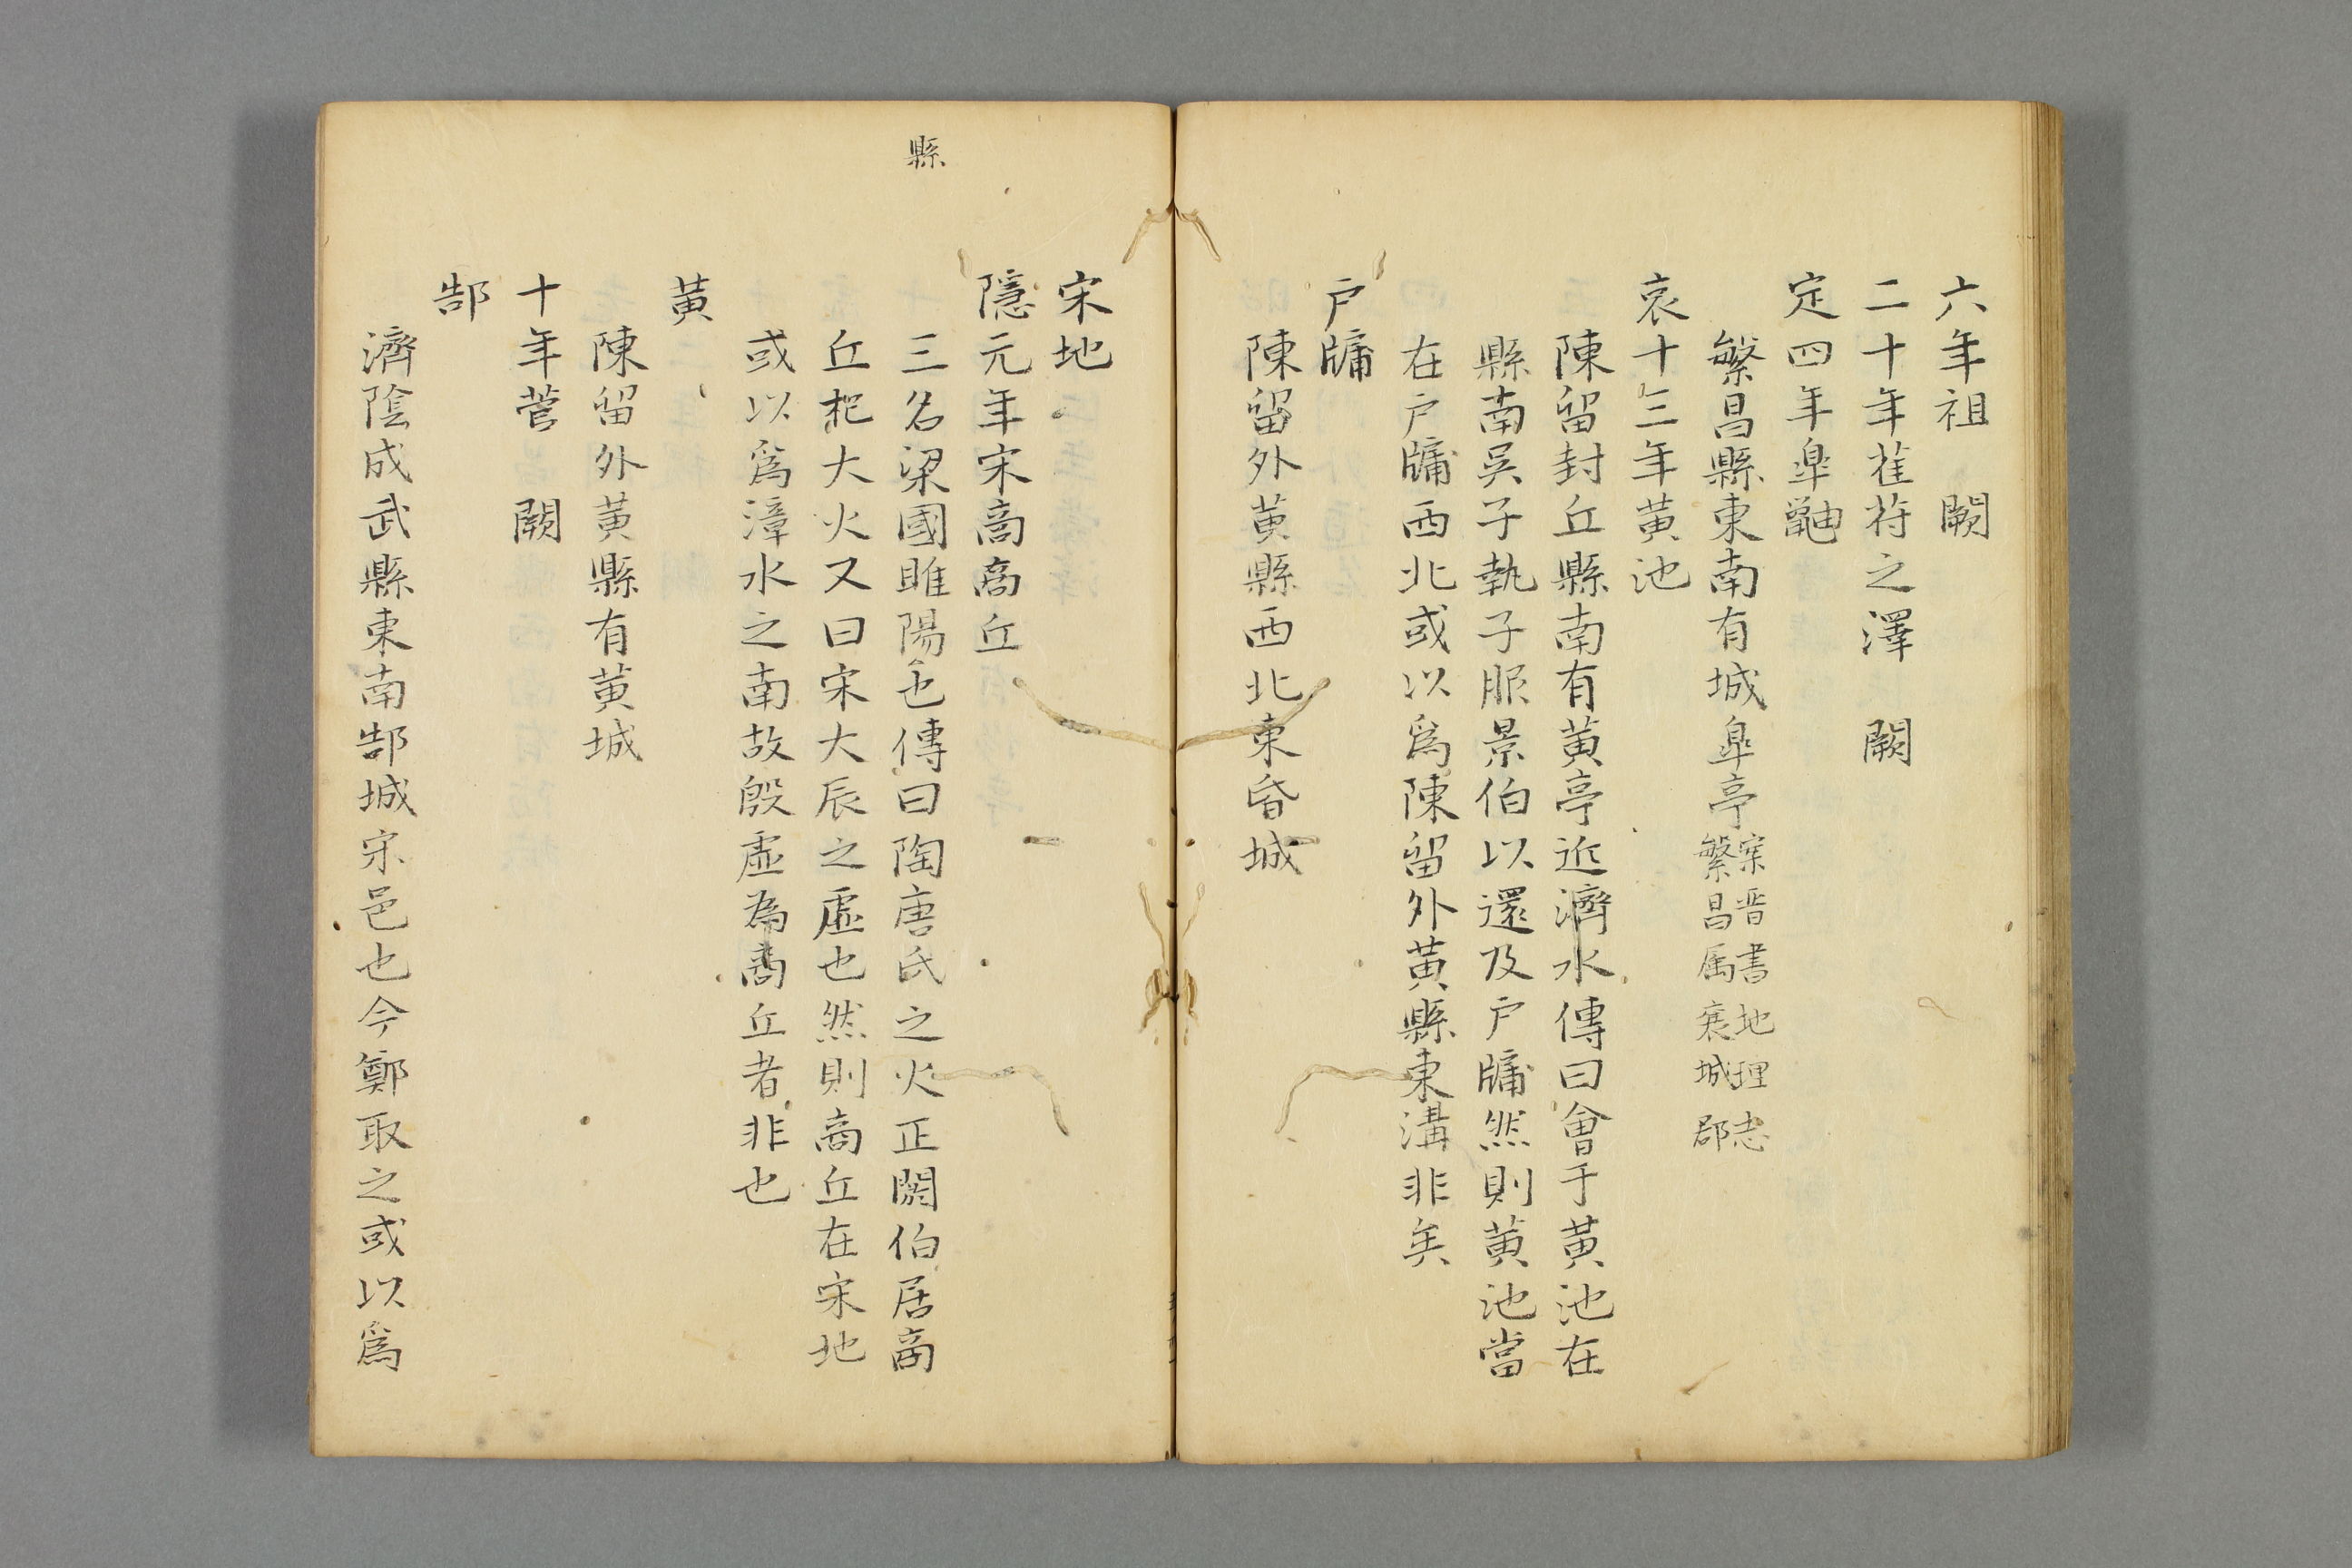 六年祖 闕
二十年萑苻之澤 闕
定四年臯鼬
繁昌縣東南有城臯亭
案晋書地理志
繁昌属襄城郡
哀十三年黄池
陳留封丘縣南有黄亭近濟水傳曰會于黄池在
縣南吳子執子服景伯以還及户牖然則黄池當
在户牖西北或以爲陳留外黄縣東溝非矣
户牖
陳留外黄縣西北東昏城
宋地
隱元年宋商商丘
縣
三名梁國雎陽也傳曰陶唐氏之火正閼伯居商
丘祀大火又曰宋大辰之虚也然則商丘在宋地
或以爲漳水之南故殷虚為商丘者非也
黄
陳留外黄縣有黄城
十年菅 闕
郜
濟陰成武縣東南郜城宋邑也今鄭取之或以爲